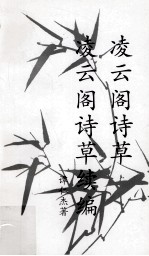 凌云阁诗草
凌云阁诗草续编
谭仁杰著